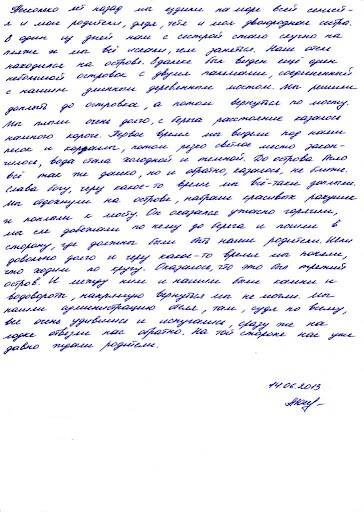 Несколько лет назад мы ездили на море всей семьей-
я и мои родители, дядя, тётя и моя двоюродная сестра.
В один из дней нам с сестрой стало скучно на
пляже и мы всё искали, чем заняться. Наш отель
находился на острове. Вдалеке был виден ещё один
небольшой островок с двумя пальмами, соединенный
с нашим длинным деревянным мостом. Мы решили
доплыть до островка, а потом вернуться по мосту.
Мы плыли очень долго, с берега расстояние казалось
намного короче. Первое время мы видели под нами
песок и кораллы, потом резко светлое место закон-
чилось, вода стала холодной и темной. До острова было
всё так же далеко, но и обратно, казалось, не ближе.
Слава богу, через какое-то время мы всё-таки доплыли.
Мы отдохнули на острове, набрали красивых ракушек
и поплыли к мосту. Он оказался ужасно горячим,
мы еле добежали по нему до берега и пошли в
сторону, где должны были быть наши родители. Шли
довольно долго и через какое-то время мы поняли,
что ходим по кругу. Оказалось, что это был третий
остров. И между ним и нашим были камни и
водовороты, напрямую вернуться мы не могли. Мы
нашли администрацию отеля, там, судя по всему,
все очень удивились и испугались, сразу же на
лодке отвезли нас обратно. На той стороне нас уже
давно ждали родители.
14.06.2013